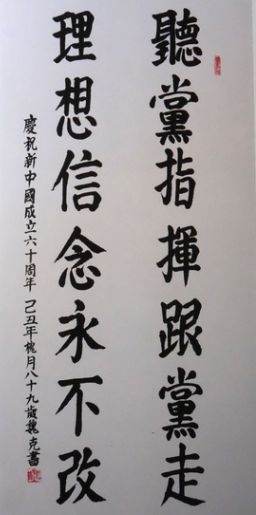 聽黨指揮跟黨走
理想信念永不改
慶祝新中國成立六十周年 己丑年槐月八十九歲魏克書